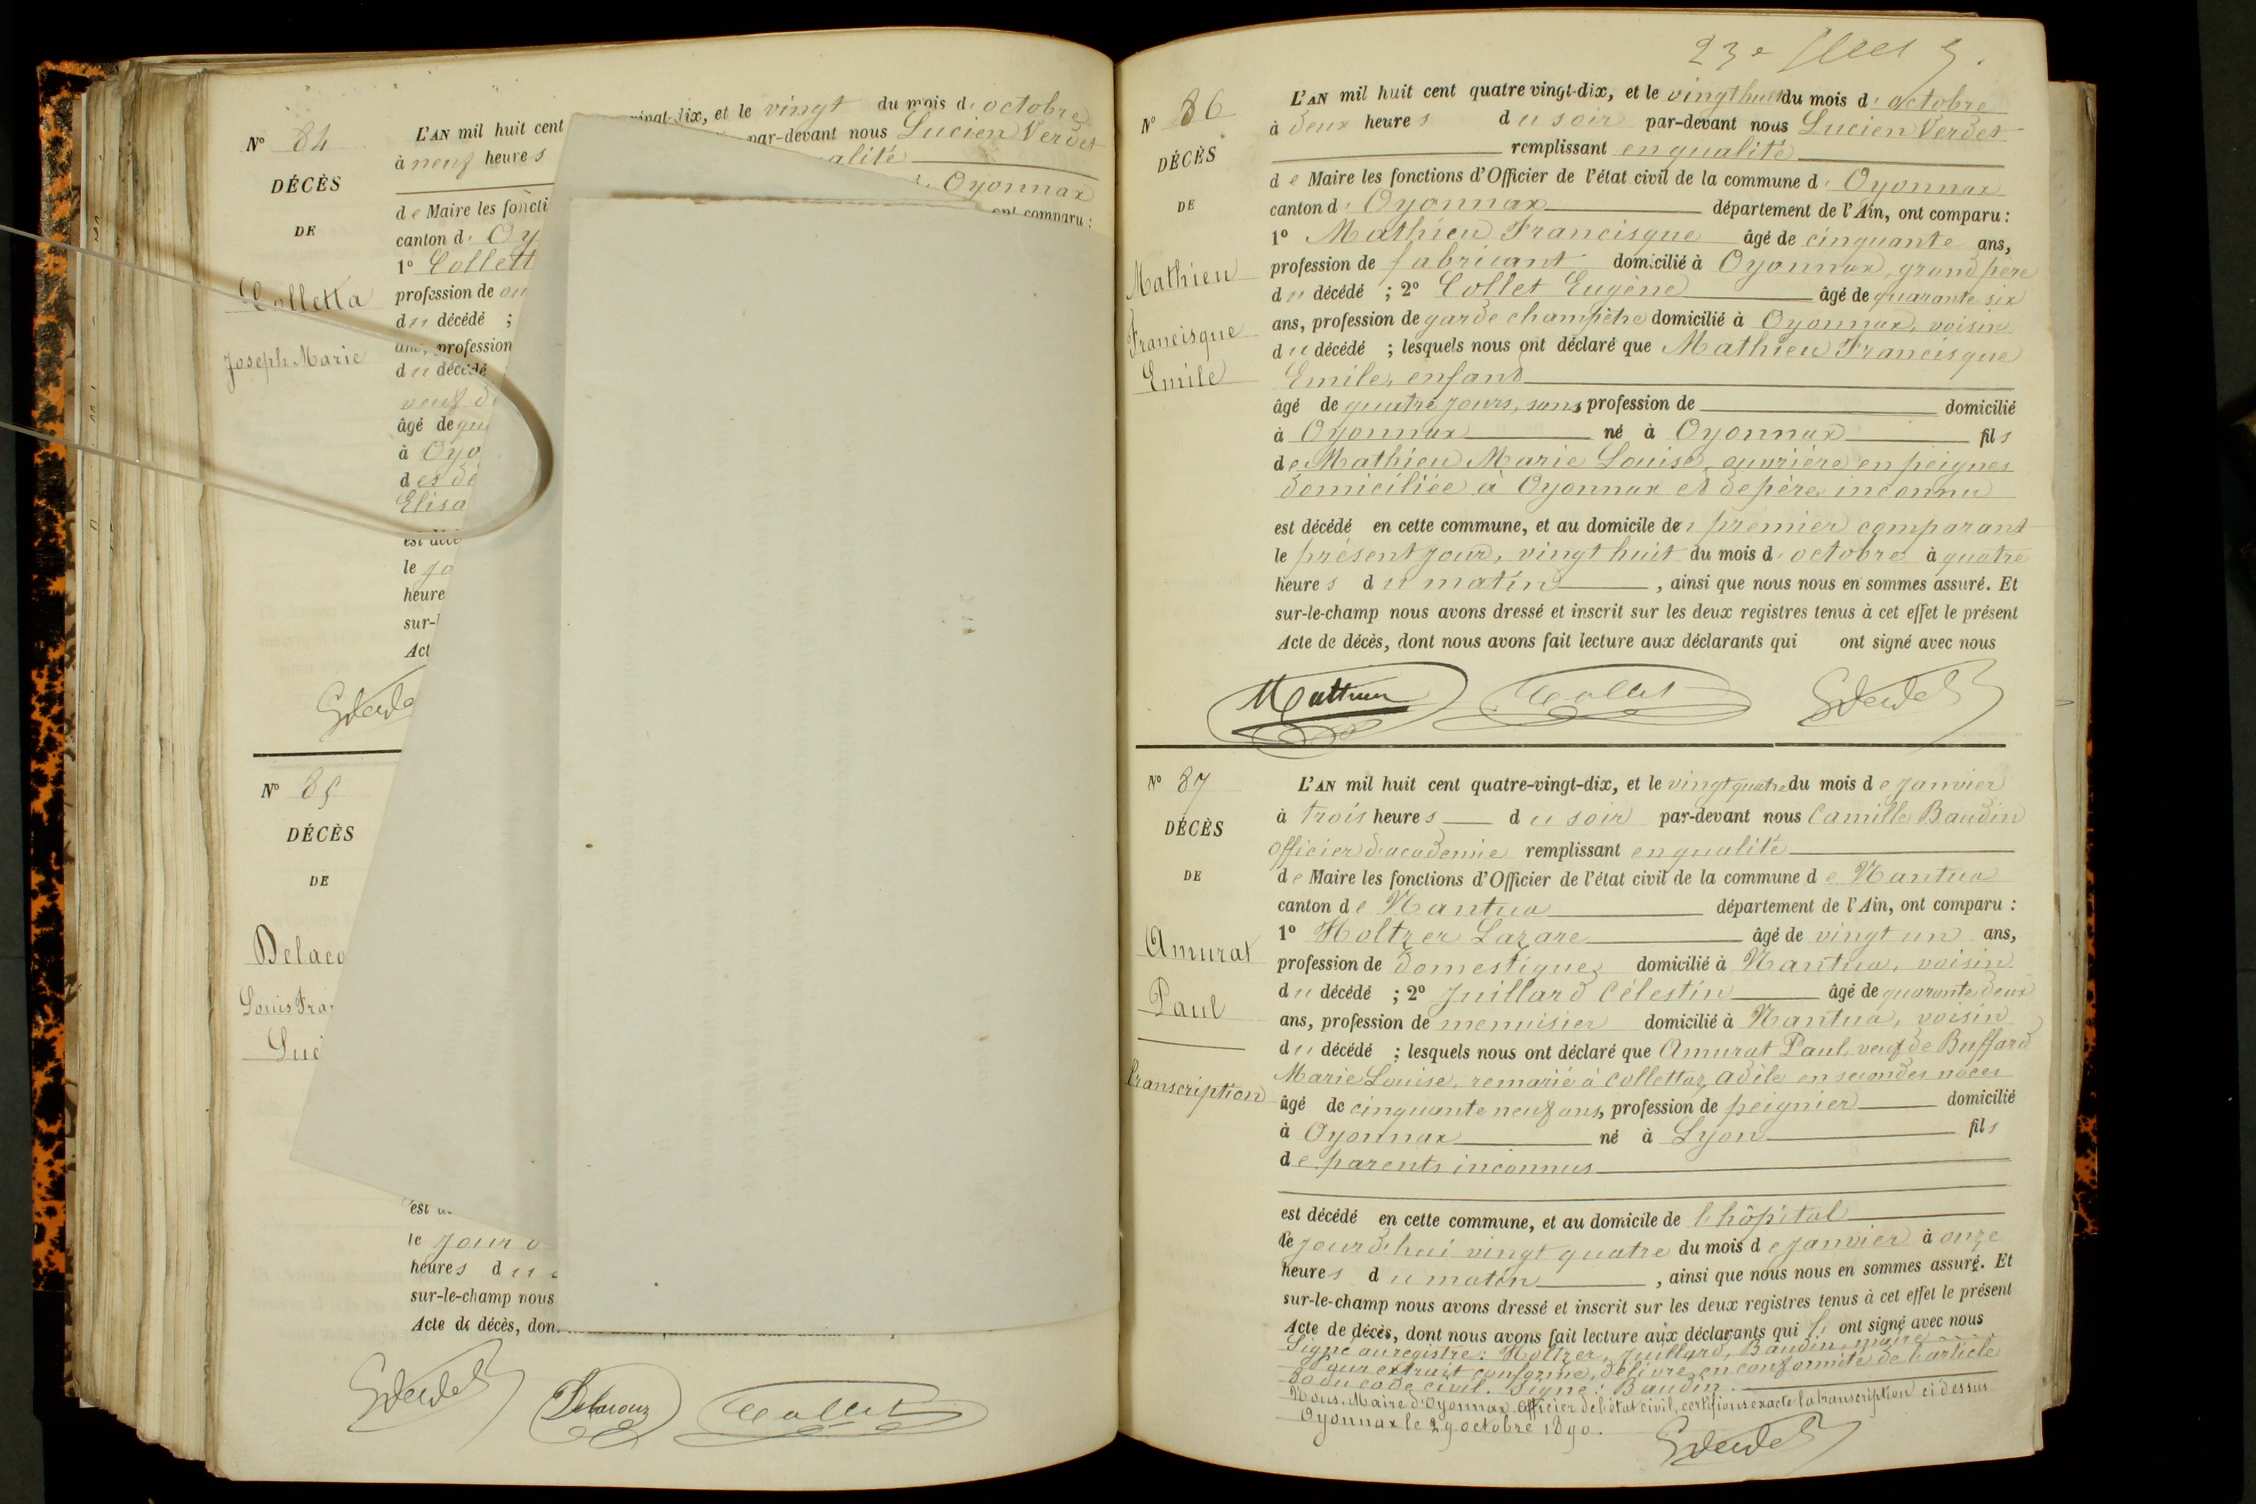 Nº 84
DÉCÈS
DE
Colletta
Joseph Marie
L'AN mil huit cent vingt-dix, et le vingt du mois d' octobre
à neuf heures par-devant nous Lucien Verdet
qualité
de Maire les foncti Oyonnax
canton d' Oy ont comparu :
1º Collett
profession de ou
du décédé ;
ans, profession
du décédé
veuf d
âgé de qu
à Oyo
des dé
Elisa
est décé
le jo
heure
sur-l
Act
Nº 85
DÉCÈS
DE
Delaco
Louis Fra
Luc
est
le jour
heures du
sur-le-champ nous
Acte de décès, don
Delacour
Collet
23e
Nº 86
DÉCÈS
DE
Mathieu
Francisque
Emile
L'AN mil huit cent quatre vingt-dix, et le vingt huit du mois d' octobre
à deux heures du soir par-devant nous Lucien Verdet
remplissant en qualité
de Maire les fonctions d'Officier de l'état civil de la commune d' Oyonnax
canton d' Oyonnax département de l'Ain, ont comparu :
1º Mathieu Francisque âgé de cinquante ans,
profession de fabricant domicilié à Oyonnax, grand père
du décédé ; 2º Collet Eugène âgé de quarante six
ans, profession de garde champêtre domicilié à Oyonnax, voisin
du décédé ; lesquels nous ont déclaré que Mathieu Francisque
Emile, enfant
âgé de quatre jours, sans profession de domicilié
à Oyonnax né à Oyonnax fils
de Mathieu Marie Louise, ouvrière en peignes
domiciliée à Oyonnax et de père inconnu
est décédé en cette commune, et au domicile du premier comparant
le présent jour, vingt huit du mois d' octobre à quatre
heures du matin , ainsi que nous nous en sommes assuré. Et
sur-le-champ nous avons dressé et inscrit sur les deux registres tenus à cet effet le présent
Acte de décès, dont nous avons fait lecture aux déclarants qui ont signé avec nous
Mathieu Collet
Nº 87
DÉCÈS
DE
Amurat
Paul
Transcription
L'AN mil huit cent quatre-vingt-dix, et le vingt quatre du mois de janvier
à trois heures du soir par-devant nous Camille Baudin
Officier d'académie remplissant en qualité
de Maire les fonctions d'Officier de l'état civil de la commune de Nantua
canton de Nantua département de l'Ain, ont comparu :
1º Holtzer Lazare âgé de vingt un ans,
profession de domestique domicilié à Nantua, voisin
du décédé ; 2º Juillard Célestin âgé de quarante deux
ans, profession de menuisier domicilié à Nantua, voisin
du décédé ; lesquels nous ont déclaré que Amurat Paul, veuf de Buffard
Marie Louise, remarié à Collettaz Adèle en secondes noces
âgé de cinquante neuf ans, profession de peignier domicilié
à Oyonnax né à Lyon fils
de parents inconnus
est décédé en cette commune, et au domicile de l'hôpital
le jourd'hui vingt quatre du mois de janvier à onze
heures du matin , ainsi que nous nous en sommes assuré. Et
sur-le-champ nous avons dressé et inscrit sur les deux registres tenus à cet effet le présent
Acte de décès, dont nous avons fait lecture aux déclarants qui ont signé avec nous
Signé au registre : Holtzer, Juillard, Baudin, maire
Pour extrait conforme, délivré en conformité de l'article
80 du code civil. Signé : Baudin
Nous, Maire d'Oyonnax, Officier de l'état civil, certifions exacte la transcription ci dessus
Oyonnax le 29 octobre 1890.